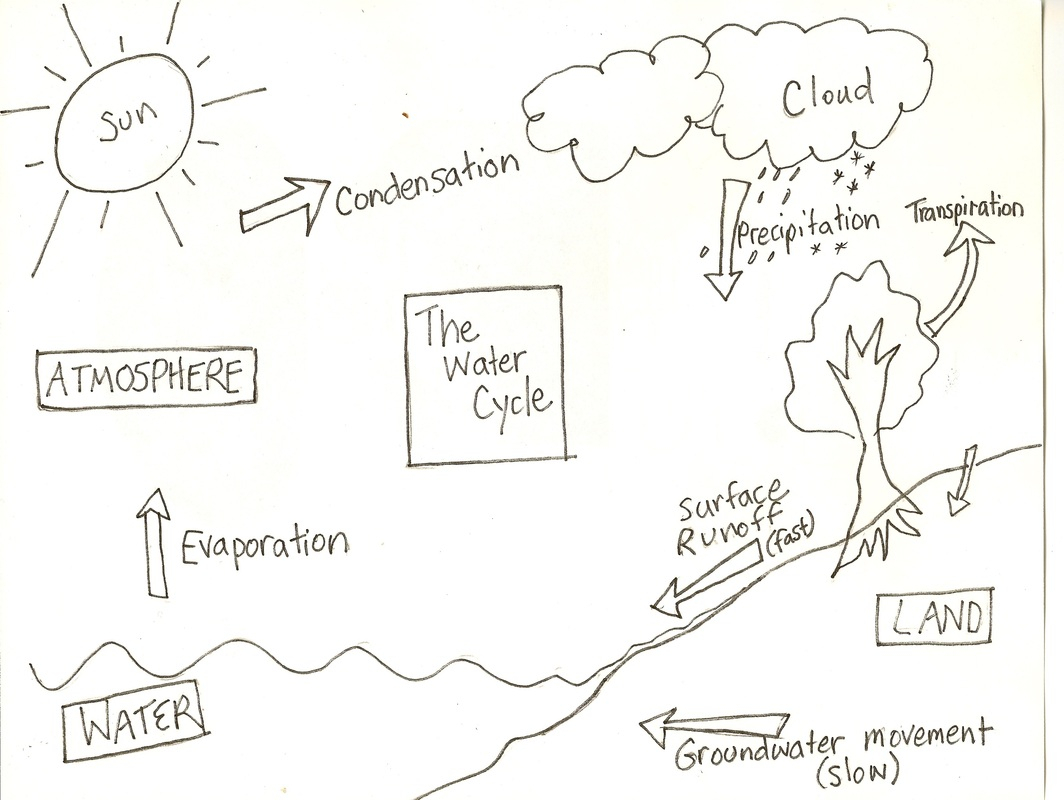 Sun
Cloud
Condensation
Precipitation
Transpiration
The
Water
Cycle
ATMOSPHERE
Surface
Runoff
(fast)
Evaporation
LAND
WATER
Groundwater movement
(slow)